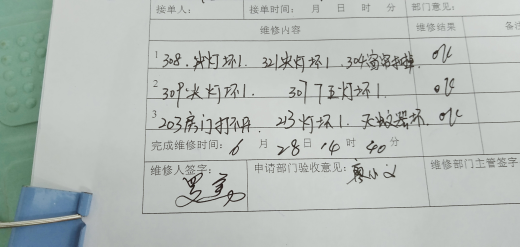 接单人： 接单时间： 月 日 时 分 部门意见：
维修内容 维修结果 备
1 308.灯坏1. 321灯坏1. 304窗帘掉. ok
2 309灯坏1. 307灯坏1. ok
3 203房门打不开 213灯坏1. 灭蚊器坏. ok
完成维修时间：6月28日14时40分
维修人签字： 申请部门验收意见： 维修部门主管签字